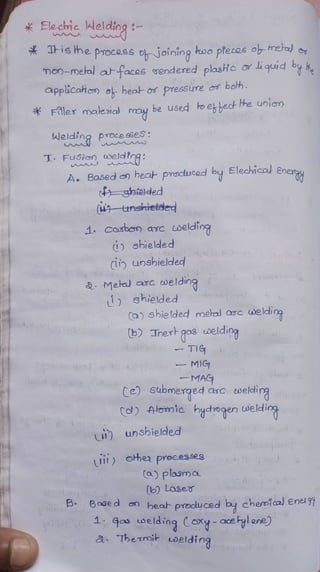 * Electric Welding :-
* It is the process of joining two pieces of metal or
non-metal at faces rendered plastic or liquid by the
application of heat or pressure or both.
* Filler material may be used to effect the union
Welding processes:
I. Fusion welding:
A. Based on heat produced by Electrical Energy
(i) shielded
(ii) unshielded
1. Carbon arc welding
(i) shielded
(ii) unshielded
2. Metal arc welding
(i) shielded
(a) shielded metal arc welding
(b) Inert gas welding
- TIG
- MIG
- MAG
(c) submerged arc welding
(d) Atomic hydrogen welding
(ii) unshielded
(iii) other processes
(a) plasma
(b) Laser
B. Based on heat produced by chemical Energy
1. gas welding (oxy-acetylene)
2. Thermit welding